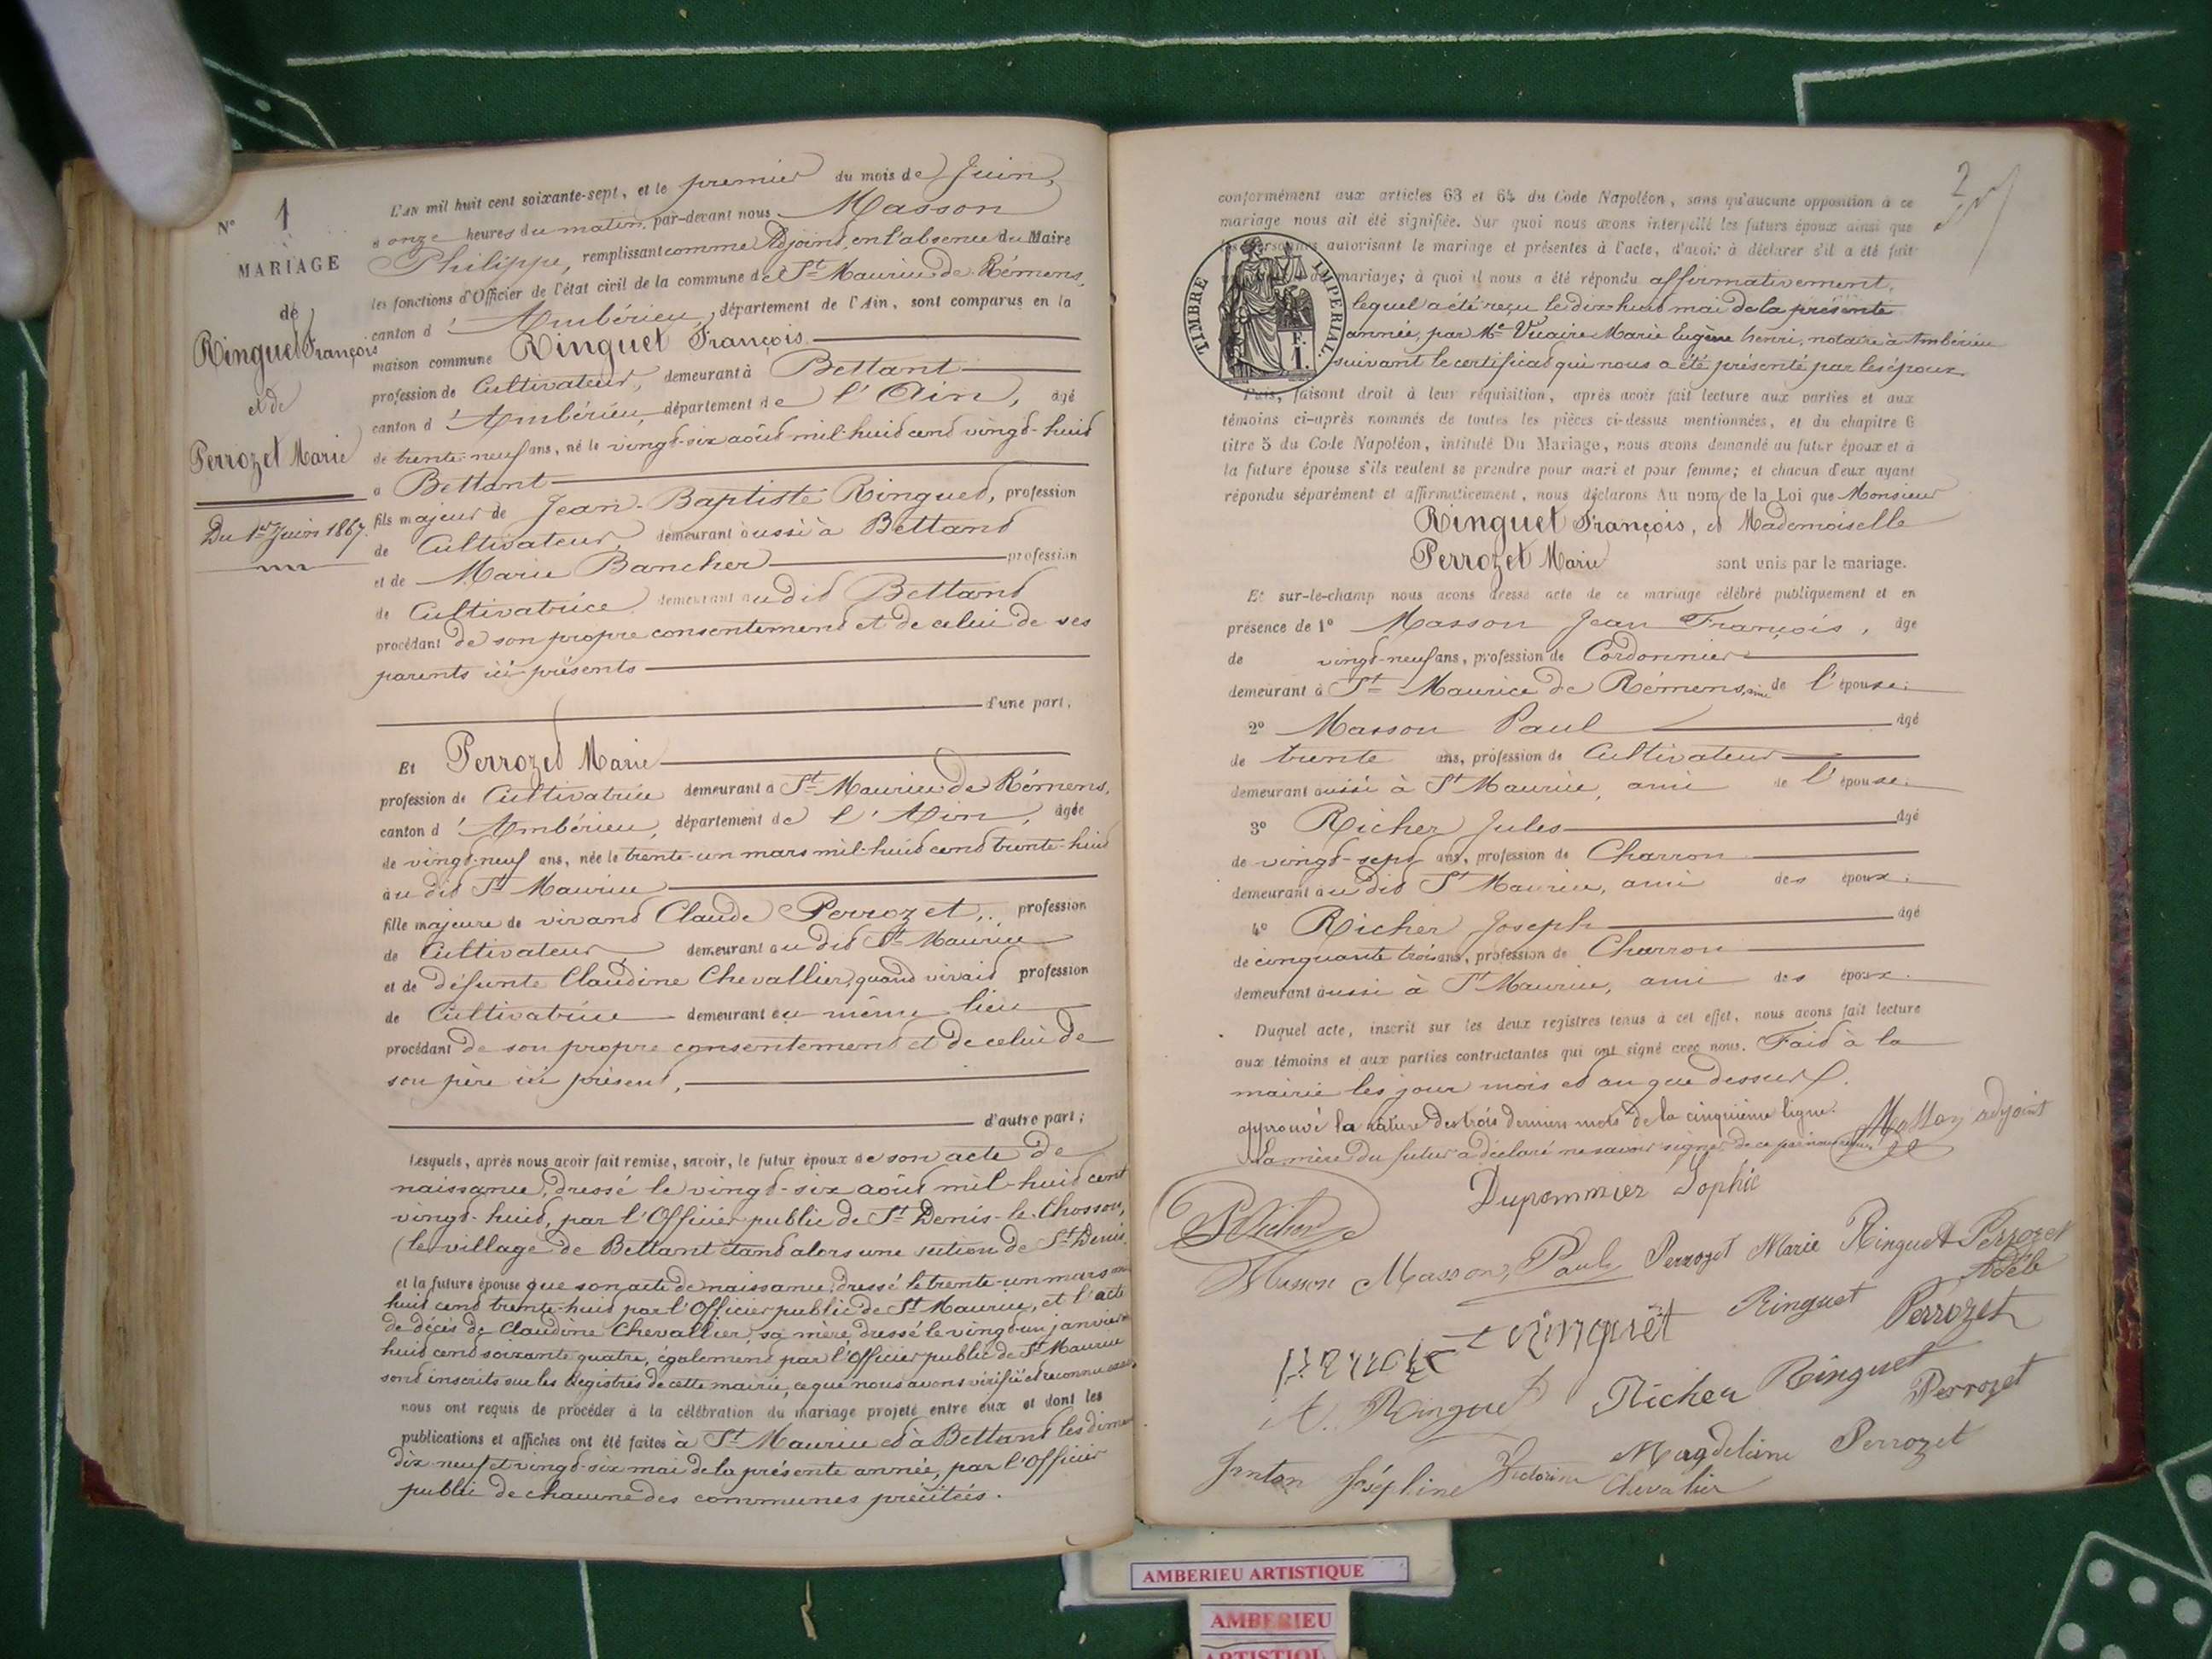 N° 1
MARIAGE
de
Ringuet François
et de
Perrozet Marie
Du 1er Juin 1867.
L'AN mil huit cent soixante-sept, et le premier du mois de Juin,
à onze heures du matin, par-devant nous Masson
Philippe, remplissant comme Adjoint, en l'absence du Maire
les fonctions d'Officier de l'état civil de la commune de St Maurice de Rémens,
canton d'Ambérieu, département de l'Ain, sont comparus en la
maison commune Ringuet François
profession de Cultivateur, demeurant à Bettant
canton d'Ambérieu, département de l'Ain, âgé
de trente-neuf ans, né le vingt-six août mil-huit cent vingt-huit
à Bettant
fils majeur de Jean-Baptiste Ringuet, profession
de Cultivateur, demeurant aussi à Bettant
et de Marie Bancher profession
de Cultivatrice, demeurant audit Bettant
procédant de son propre consentement et de celui de ses
parents ici présents
d'une part;
Et Perrozet Marie
profession de Cultivatrice demeurant à St Maurice de Rémens,
canton d'Ambérieu, département de l'Ain, âgée
de vingt-neuf ans, née le trente-un mars mil-huit cent trente-huit
au dit St Maurice
fille majeure de vivant Claude Perrozet, profession
de Cultivateur, demeurant au dit St Maurice
et de défunte Claudine Chevallier, quand vivait profession
de Cultivatrice demeurant au même lieu
procédant de son propre consentement et de celui de
son père ici présent,
d'autre part;
Lesquels, après nous avoir fait remise, savoir, le futur époux de son acte de
naissance, dressé le vingt-six août mil-huit cent
vingt-huit, par l'Officier public de St Denis-le-Chosson,
(le village de Bettant étant alors une section de St Denis
et la future épouse que son acte de naissance, dressé le trente-un mars
huit cent trente-huit par l'Officier public de St Maurice, et l'acte
de décès de Claudine Chevallier, sa mère, dressé le vingt-un janvier
huit cent soixante quatre, également par l'Officier public de St Maurice
sont inscrits sur les Registres de cette mairie, ce que nous avons vérifié et reconnu
nous ont requis de procéder à la célébration du mariage projeté entre eux et dont les
publications et affiches ont été faites à St Maurice et à Bettant les dim
dix neuf et vingt-six mai de la présente année, par l'Officier
public de chacune des communes précitées.
2
conformément aux articles 63 et 64 du Code Napoléon, sans qu'aucune opposition à ce
mariage nous ait été signifiée. Sur quoi nous avons interpellé les futurs époux ainsi que
les personnes autorisant le mariage et présentes à l'acte, d'avoir à déclarer s'il a été fait
mariage; à quoi il nous a été répondu affirmativement,
lequel a été reçu le dix-huit mai de la présente
année, par Me Vicaire Marie Eugène henri, notaire à Ambérieu
suivant le certificat qui nous a été présenté par les époux
TIMBRE IMPERIAL.
F.
1.
Puis, faisant droit à leur réquisition, après avoir fait lecture aux parties et aux
témoins ci-après nommés de toutes les pièces ci-dessus mentionnées, et du chapitre 6
titre 5 du Code Napoléon, intitulé Du Mariage, nous avons demandé au futur époux et à
la future épouse s'ils veulent se prendre pour mari et pour femme; et chacun d'eux ayant
répondu séparément et affirmativement, nous déclarons Au nom de la Loi que Monsieur
Ringuet François, et Mademoiselle
Perrozet Marie sont unis par le mariage.
Et sur-le-champ nous avons dressé acte de ce mariage célébré publiquement et en
présence de 1° Masson Jean François, âgé
de vingt-neuf ans, profession de Cordonnier
demeurant à St Maurice de Rémens, ami de l'épouse;
2° Masson Paul âgé
de trente ans, profession de Cultivateur
demeurant aussi à St Maurice, ami de l'épouse;
3° Richer Jules âgé
de vingt-sept ans, profession de Charron
demeurant au dit St Maurice, ami des époux;
4° Richer Joseph âgé
de cinquante trois ans, profession de Charron
demeurant aussi à St Maurice, ami des époux.
Duquel acte, inscrit sur les deux registres tenus à cet effet, nous avons fait lecture
aux témoins et aux parties contractantes qui ont signé avec nous. Fait à la
mairie les jour mois et an que dessus.
approuvé la rature des trois derniers mots de la cinquième ligne. Masson adjoint
La mère du futur a déclaré ne savoir signer de ce par nous requis
Dupommier Sophie
Masson Masson, Paul Perrozet Marie Ringuet Perrozet
Adèle
Ringuet Ringuet Perrozet
A. Ringuet Richer Ringuet Perrozet
Janton Joséphine Victorine Magdelaine Perrozet
Chevalier
AMBERIEU ARTISTIQUE
AMBERIEU
ARTISTIQUE